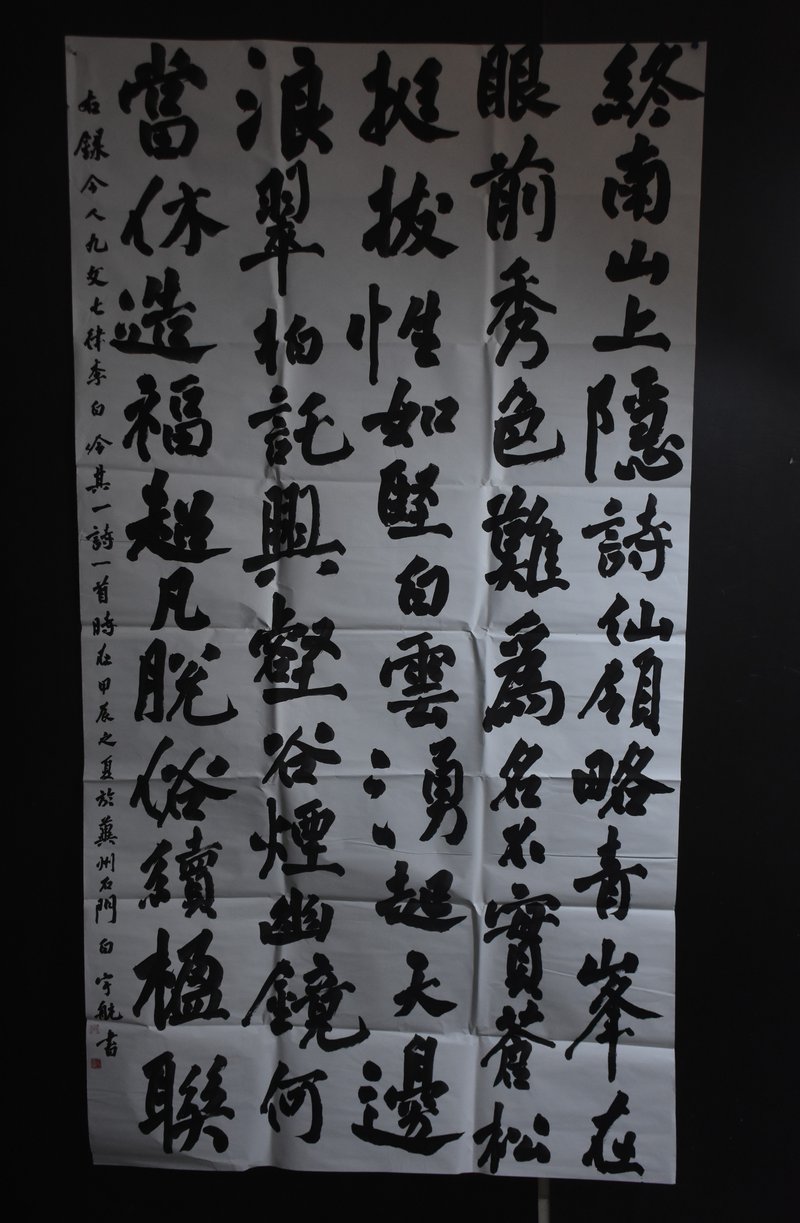 終南山上隱詩仙領略青峯在
眼前秀色難為名不實蒼松
挺拔性如堅白雲湧起天邊
浪翠柏託興壑谷煙幽鏡何
當休造福超凡脫俗續楹聯
右錄今人九父七律李白吟其一詩一首時在甲辰之夏於冀州石門白宇航書